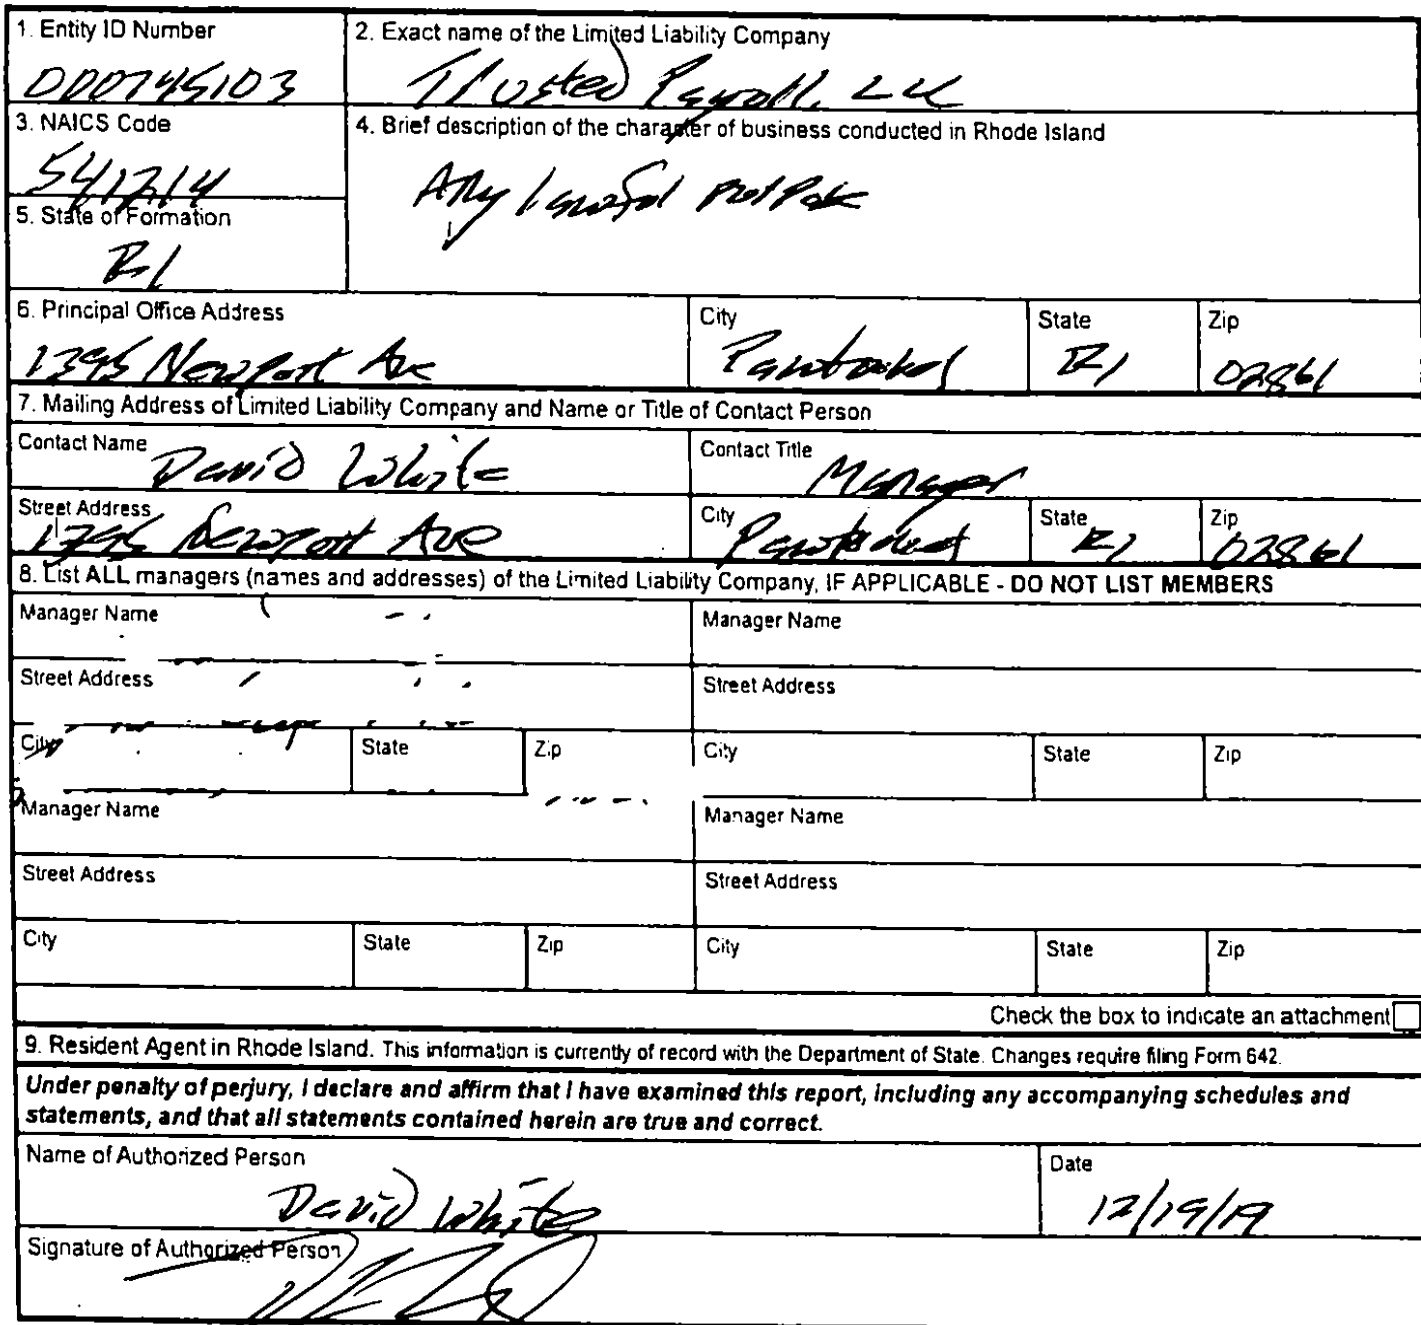 1. Entity ID Number
000745103
2. Exact name of the Limited Liability Company
Trusted Payroll, LLC
3. NAICS Code
541214
4. Brief description of the character of business conducted in Rhode Island
Any lawful purpose
5. State of Formation
RI
6. Principal Office Address
1395 Newport Ave
City
Pawtucket
State
RI
Zip
02861
7. Mailing Address of Limited Liability Company and Name or Title of Contact Person
Contact Name
David White
Contact Title
Manager
Street Address
1395 Newport Ave
City
Pawtucket
State
RI
Zip
02861
8. List ALL managers (names and addresses) of the Limited Liability Company, IF APPLICABLE - DO NOT LIST MEMBERS
Manager Name
Manager Name
Street Address
Street Address
City State Zip City State Zip
Manager Name
Manager Name
Street Address
Street Address
City State Zip City State Zip
Check the box to indicate an attachment
9. Resident Agent in Rhode Island. This information is currently of record with the Department of State. Changes require filing Form 642.
Under penalty of perjury, I declare and affirm that I have examined this report, including any accompanying schedules and
statements, and that all statements contained herein are true and correct.
Name of Authorized Person
David White
Date
12/19/19
Signature of Authorized Person